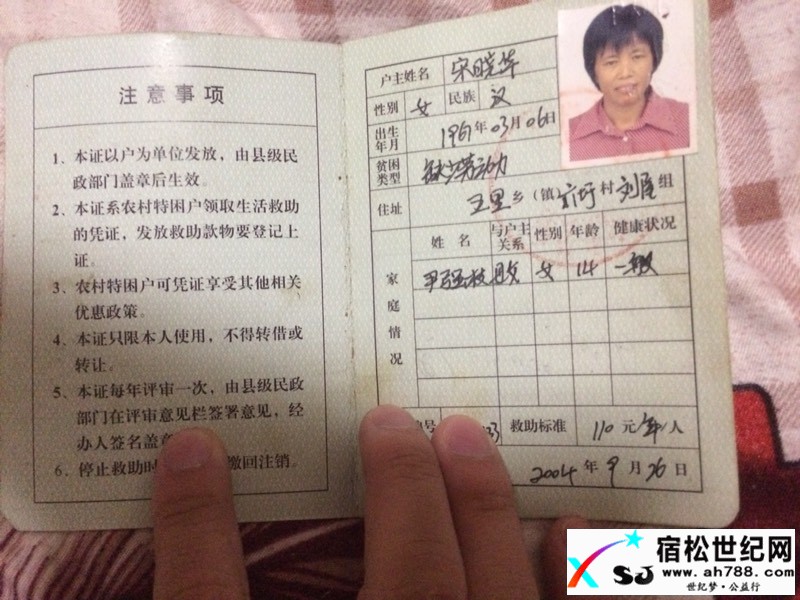 注意事项
1、本证以户为单位发放，由县级民
政部门盖章后生效。
2、本证系农村特困户领取生活救助
的凭证，发放救助款物要登记上
证。
3、农村特困户可凭证享受其他相关
优惠政策。
4、本证只限本人使用，不得转借或
转让。
5、本证每年评审一次，由县级民政
部门在评审意见栏签署意见，经
办人签名盖章
6、停止救助时 缴回注销。
户主姓名 宋晓华
性别 女 民族 汉
出生年月 1967年03月06日
贫困类型 缺少劳动力
住址 王里乡（镇 村 刘屋组
姓名 与户主关系 性别 年龄 健康状况
家庭情况
女 14 一般
号 救助标准 110元/年/人
2004年9月26日
宿松世纪网
SJ www.ah788.com
世纪梦·公益行